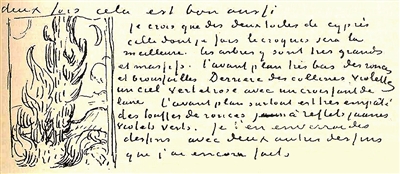 deux fois cela est bon aussi
Je crois que des deux toiles de cyprès
celle dont je fais le croquis sera la
meilleure. les arbres y sont très grands
et massifs. l'avant plan très bas des ronces
et broussailles Derrière des collines violettes
un ciel vert et rose avec un croissant de
lune L'avant plan surtout est très empaté
des touffes de ronces à reflets jaunes
violets verts. Je t'en enverrai des
dessins avec deux autres dessins
que j'ai encore faits